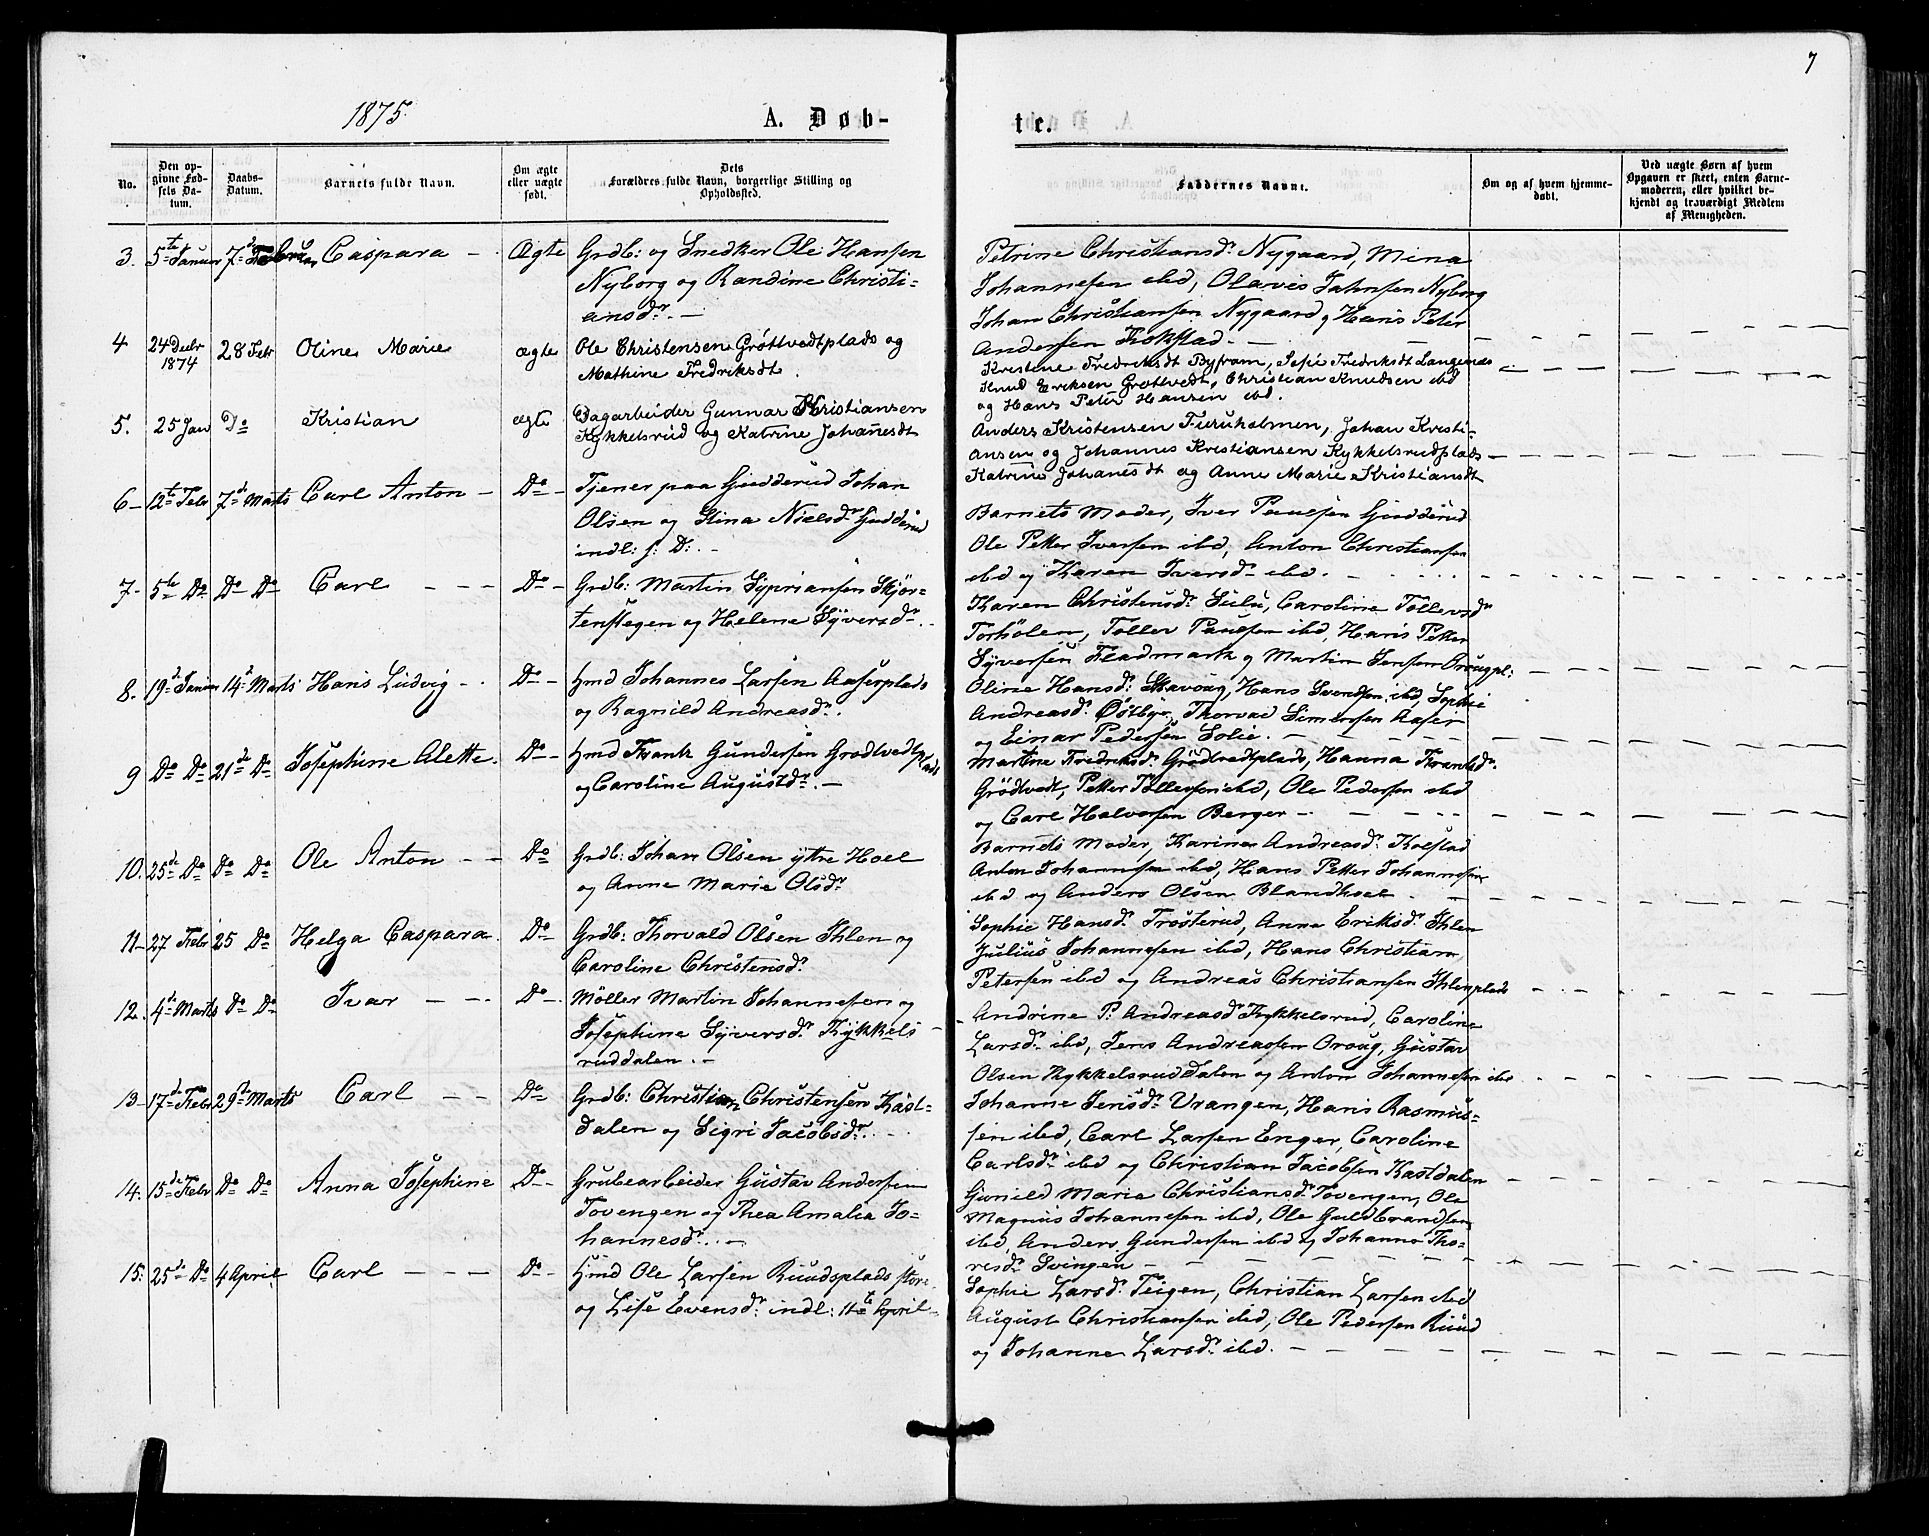 7
1875
A. Døb-
te.
No.
Den op-
givne Fød-
sels Da-
tum.
Daabs-
Datum.
Barnets fulde Navn.
Om ægte
eller uægte
født.
Dets
Forældres fulde Navn, borgerlige Stilling og
Opholdssted.
Faddernes Navne.
Om og af hvem hjemme-
døbt.
Ved uægte Børn af hvem
Opgaven er skeet, enten Barne-
moderen, eller hvilket be-
kjendt og troværdigt Medlem
af Menigheden.
3. 5te Januar 7de Februar Caspara - Ægte Grdb: og Snedker Ole Hansen
Nyborg og Randine Christi=
ansdr. -
Petrine Christiansdr Nygaard, Mina
Johannesen ibd, Olavis Jahnsen Nyborg
Johan Christiansen Nygaard og Hans Peter
Andersen Kokstad. -
4 24 Decbr 1874 28 Febr Oline Marie ægte Ole Christensen Grøttvedtplads og
Mathine Fredriksdt.
Kristine Fredriksdt Byfram, Sofie Fredriksdt Langenes
Knud Eriksen Grøttvedt, Christian Knudsen ibd
og Hans Peter Hansen ibd.
5. 25 Jan Do Kristian ægte Dagarbeider Gunnar Kristiansen
Kykkelsrud og Katrine Johanesdt
Anders Kristensen Furuholmen, Johan Kristi-
ansen og Johannes Kristiansen Kykkelsrudplads
Katrine Johanesdt og Anne Marie Kristiansdt
6 - 12te Febr 7de Marts Carl Anton - Do - Tjener paa Gudderud Johan
Olsen og Stina Nielsdr Gudderud
indl: f: D: -
Barnets Moder, Iver Paulsen Gudderud
Ole Petter Iversen ibd, Anton Christiansen
ibd og Karen Iversdr ibd.
7 - 5te Do Do Do Carl - - - Do - Grdb: Martin Sypriansen Skjøs-
tenstegen og Helene Syversdr.
Karen Christensdr Sulu, Caroline Tollevsdr
Torholen, Toller Paulsen ibd, Hans Petter
Syversen Fladmark og Martin Jensen Ovougpl:
8. 19de Januar 14de Marts Hans Ludvig - Do - Hmd Johannes Larsen Aaserplads
og Ragnild Andreasdr.
Oline Hansdr: Skavoug, Hans Svendsen ibd, Sophie
Andreasdr Østbye, Thorval Simensen Aaser
og Einar Pedersen Solie. -
9 Do Do 21de Do Josephine Alette. Do - Hmd Frantz Gundersen Grødtvedtplads
og Caroline Augustdr. -
Martine Fredriksdr Grødtvedtplads, Hanna Frantsdr.
Grødtvedt, Petter Tollevsen ibd, Ole Pedersen ibd
og Carl Halvorsen Berger -
10. 25de Do Do Do Ole Anton - - Do Grdb: Johan Olsen yttre Hoel
og Anne Marie Olsdr
Barnets Moder, Karine Andreasdr Kolstad
Anton Johannesen ibd, Hans Petter Johannesen
ibd og Anders Olsen Blandhoel -
11 - 27 Febr 25 Do Helga Caspara. Do - Grdb: Thorvald Olsen Ihlen og
Caroline Christensdr
Sophie Hansdr Trosterud, Anne Eriksdr Ihlen
Julius Johannesen ibd, Hans Christian
Petersen ibd og Andreas Christiansen Ihlenplads
12. 4de Marts Do Do Ivar - - Do - Møller Martin Johannesen og
Josephine Syversdr Kykkels
ruddalen. -
Andrine P: Andreasdr Kykkelsrud, Caroline
Larsdr ibd, Jens Andreassen Ovoug, Gustav
Olsen Kykkelsruddalen og Anton Johannesen ibd
13 - 17de Febr 29de Marts Carl - - Do Grdb: Christian Christensen Kast-
dalen og Sigri Jacobsdr.
Johanne Jensdr Vrangen, Hans Rasmus-
sen ibd, Carl Larsen Enger, Caroline
Carlsdr ibd og Christian Jacobsen Kastdalen
14. 15de Febr Do Do Anna Josephine Do - Grubearbeider Gustav Andersen
Tovengen og Thea Amalia Jo=
hannesdr. -
Gunild Marie Christiansdr Tovengen, Ole
Magnus Johannesen ibd, Ole Guldbrandsen
ibd, Anders Gundersen ibd og Johanne Tho-
resdr Svingen -
15: 25de Do 4 April Carl - - - Do - Hmd Ole Larsen Ruudsplads store
og Lise Evensdr: indl: 11te April
Sophie Larsdr Teigen, Christian Larsen ibd
August Christiansen ibd, Ole Pedersen Ruud
og Johanne Larsdr ibd. -